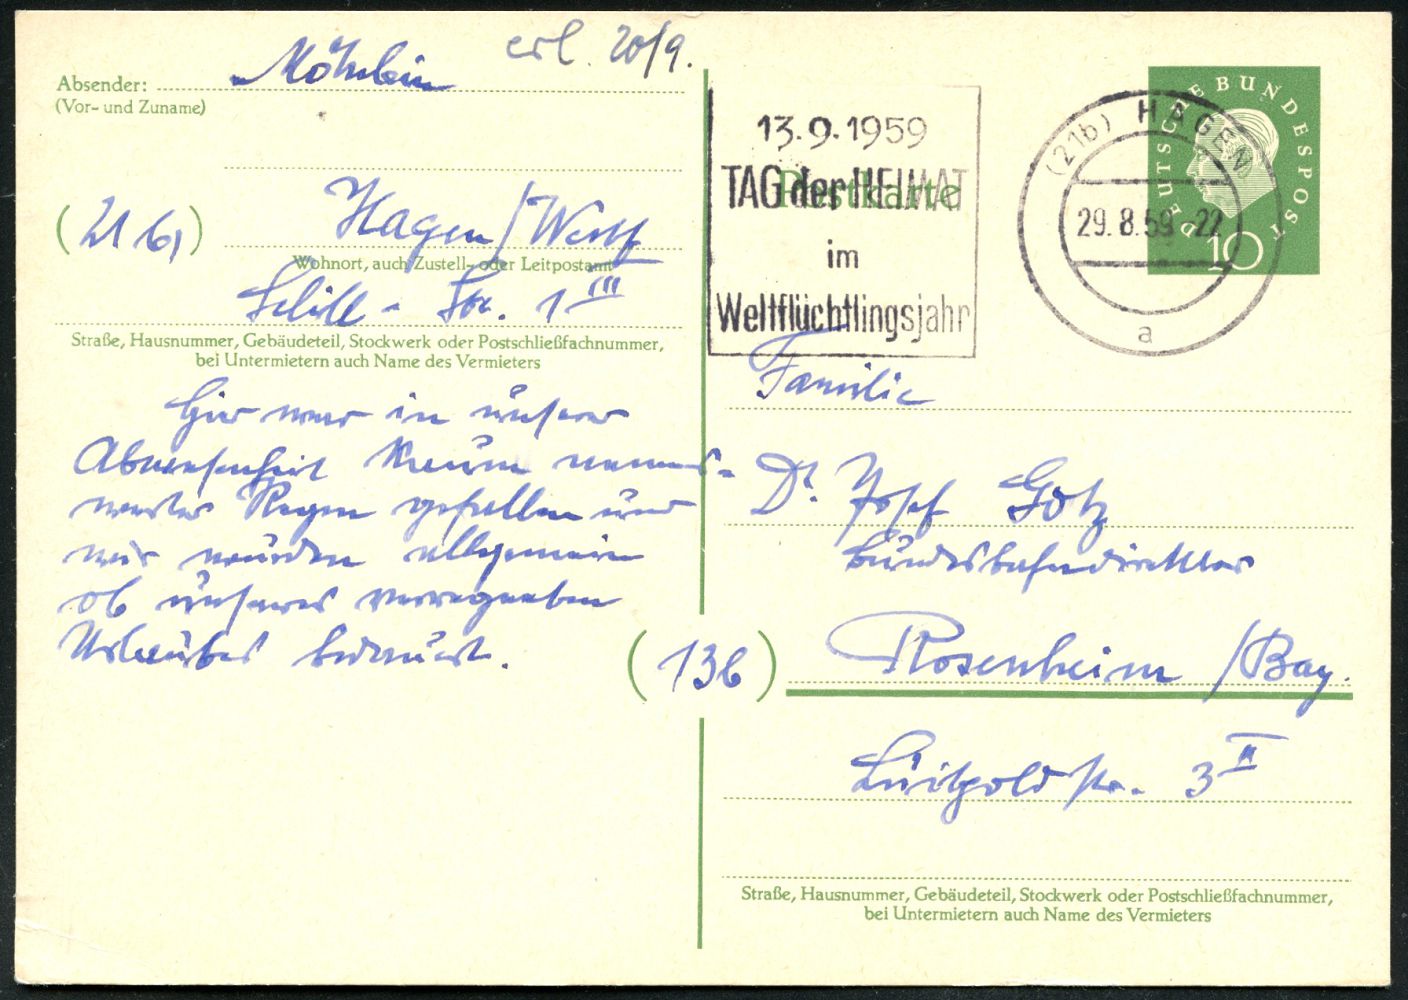 erl. 20/9.
Absender: Möhrlein
(Vor- und Zuname)
(21b) Hagen/Westf
Wohnort, auch Zustell- oder Leitpostamt
Schill-Str. 1 III
Straße, Hausnummer, Gebäudeteil, Stockwerk oder Postschließfachnummer,
bei Untermietern auch Name des Vermieters
Hier war in unserer
Abwesenheit kaum nennens-
werter Regen gefallen und
wir wurden allgemein
ob unseres verregneten
Urlaubes bedauert.
13.9.1959
TAG der HEIMAT
im
Weltflüchtlingsjahr
Postkarte
(21b) HAGEN
29.8.59-22
a
DEUTSCHE BUNDESPOST
10
Familie
Dr. Josef Götz
Bundesbahndirektor
(13b) Rosenheim /Bay.
Luitpoldstr. 3 II
Straße, Hausnummer, Gebäudeteil, Stockwerk oder Postschließfachnummer,
bei Untermietern auch Name des Vermieters